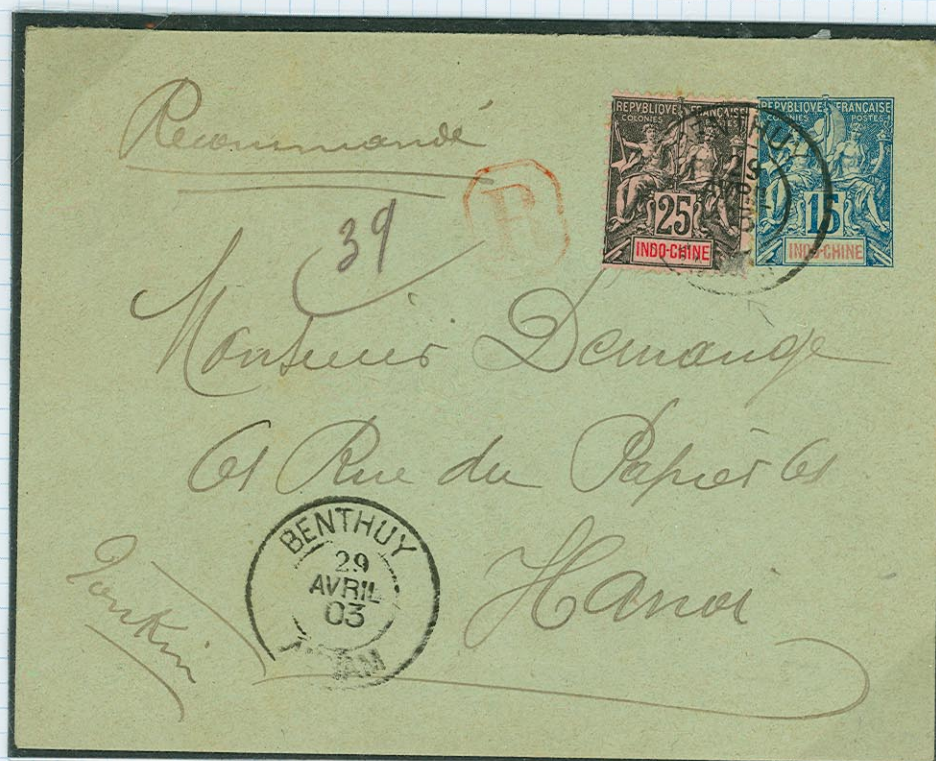 Recommandé
R
39
REPVBLIQVE FRANÇAISE
COLONIES POSTES
25
INDO-CHINE
REPVBLIQVE FRANÇAISE
COLONIES POSTES
15
INDO-CHINE
BENTHUY
29
AVRIL
Monsieur Demange
61 Rue du Papier 61
Hanoi
Tonkin
BENTHUY
29
AVRIL
03